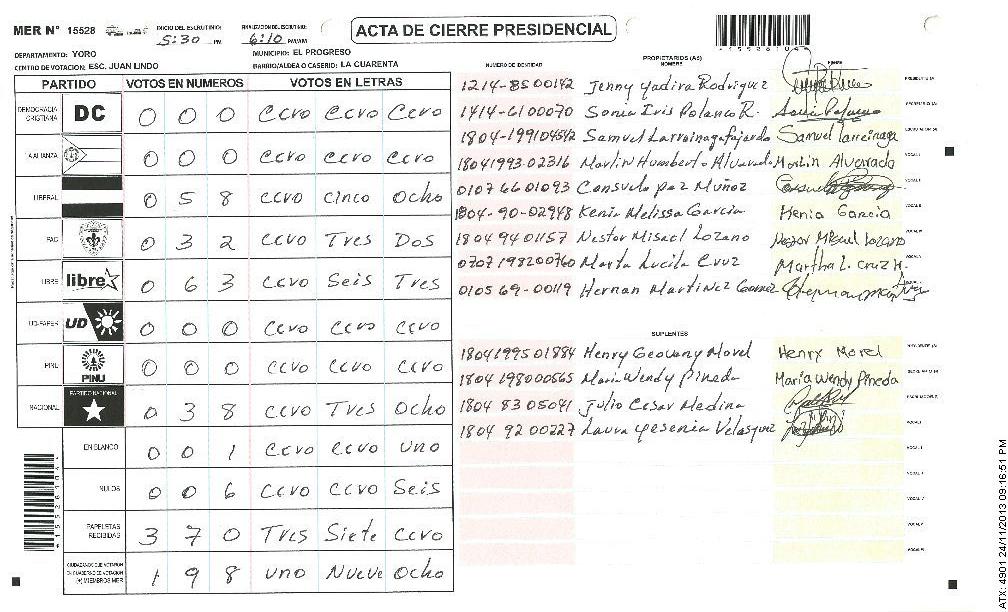 MER Nº 15528
INICIO DEL ESCRUTINIO: 5:30 PM
FINALIZACION DEL ESCRUTINIO: 6:10 PM/AM
ACTA DE CIERRE PRESIDENCIAL
DEPARTAMENTO: YORO
MUNICIPIO: EL PROGRESO
CENTRO DE VOTACION: ESC. JUAN LINDO
BARRIO/ALDEA O CASERIO: LA CUARENTA
PARTIDO VOTOS EN NUMEROS VOTOS EN LETRAS
DEMOCRACIA CRISTIANA DC 0 0 0 Cero Cero Cero
ALIANZA 0 0 0 Cero Cero Cero
LIBERAL 0 5 8 Cero Cinco Ocho
PAC 0 3 2 Cero Tres Dos
LIBRE libre 0 6 3 Cero Seis Tres
UD-FAPER UD 0 0 0 Cero Cero Cero
PINU PINU 0 0 0 Cero Cero Cero
NACIONAL PARTIDO NACIONAL 0 3 8 Cero Tres Ocho
EN BLANCO 0 0 1 Cero Cero uno
NULOS 0 0 6 Cero Cero Seis
PAPELETAS RECIBIDAS 3 7 0 Tres Siete Cero
CIUDADANOS QUE VOTARON EN CUADERNO DE VOTACION (+) MIEMBROS MER 1 9 8 uno Nueve Ocho
PROPIETARIOS (AS)
NUMERO DE IDENTIDAD NOMBRE FIRMA
1214-8500142 Jenny Yadira Rodriguez
1414-6100070 Sonia Iris Polanco R.
1804-199104542 Samuel Larreinaga Fajardo Samuel Larreinaga
1804199302316 Marlin Humberto Alvarado Marlin Alvarado
0107 6601093 Consuelo paz Muñoz
1804-90-02948 Kenia Melissa Garcia Kenia Garcia
1804 9401157 Nestor Misael Lozano
0707 198200760 Marta Lucila Cruz Martha L. Cruz H.
0105 69-00119 Hernan Martinez Gomez
SUPLENTES
1804199501884 Henry Geovany Morel Henry Morel
1804 198000565 Maria Wendy Pineda María Wendy Pineda
1804 83 05041 Julio Cesar Medina
1804 92 00227 Laura Yesenia Velasquez
ATX: 4901 24/11/2013 09:16:51 PM